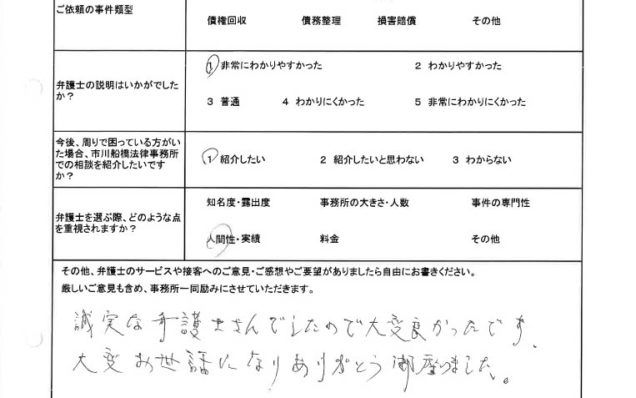 ご依頼の事件類型
債権回収 債務整理 損害賠償 その他
弁護士の説明はいかがでしたか？
1 非常にわかりやすかった 2 わかりやすかった
3 普通 4 わかりにくかった 5 非常にわかりにくかった
今後、周りで困っている方がいた場合、市川船橋法律事務所での相談を紹介したいですか？
1 紹介したい 2 紹介したいと思わない 3 わからない
弁護士を選ぶ際、どのような点を重視されますか？
知名度・露出度 事務所の大きさ・人数 事件の専門性
人間性・実績 料金 その他
その他、弁護士のサービスや接客へのご意見・ご感想やご要望がありましたら自由にお書きください。
厳しいご意見も含め、事務所一同励みにさせていただきます。
誠実な弁護士さんでしたので大変良かったです。
大変お世話になりありがとう御座いました。